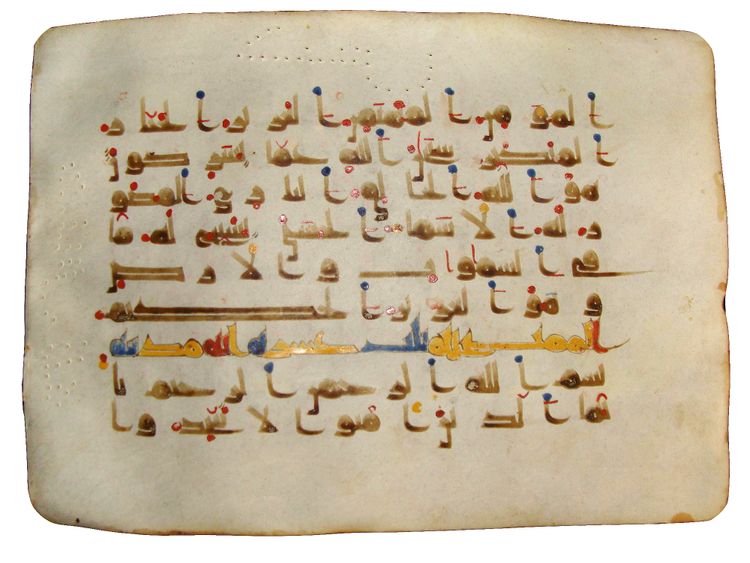 المؤمن المهيمن العزيز الجبار
المتكبر سبحن الله عما يشركون
هو الله الخلق البارئ المصو
ر له الاسما الحسنى يسبح له ما
في السموات والارض
وهو العزيز الحكيم
الممتحنه ثلث عشره ايه مدنيه
بسم الله الرحمن الرحيم يا
ايها الذين امنوا لا تتخذوا